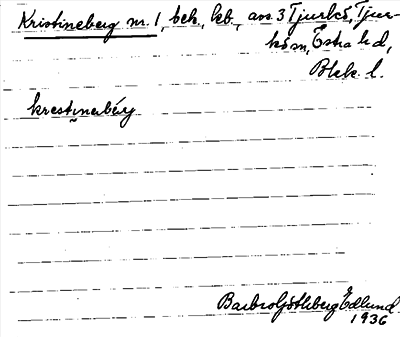 Kristineberg nr. 1, beh., lxb., avs 3 Tjurkö, Tjur-
kö sn, Östra hd,
Blek. l.
krestinɐbæ̀rj
Barbro Göthberg Edlund
1936